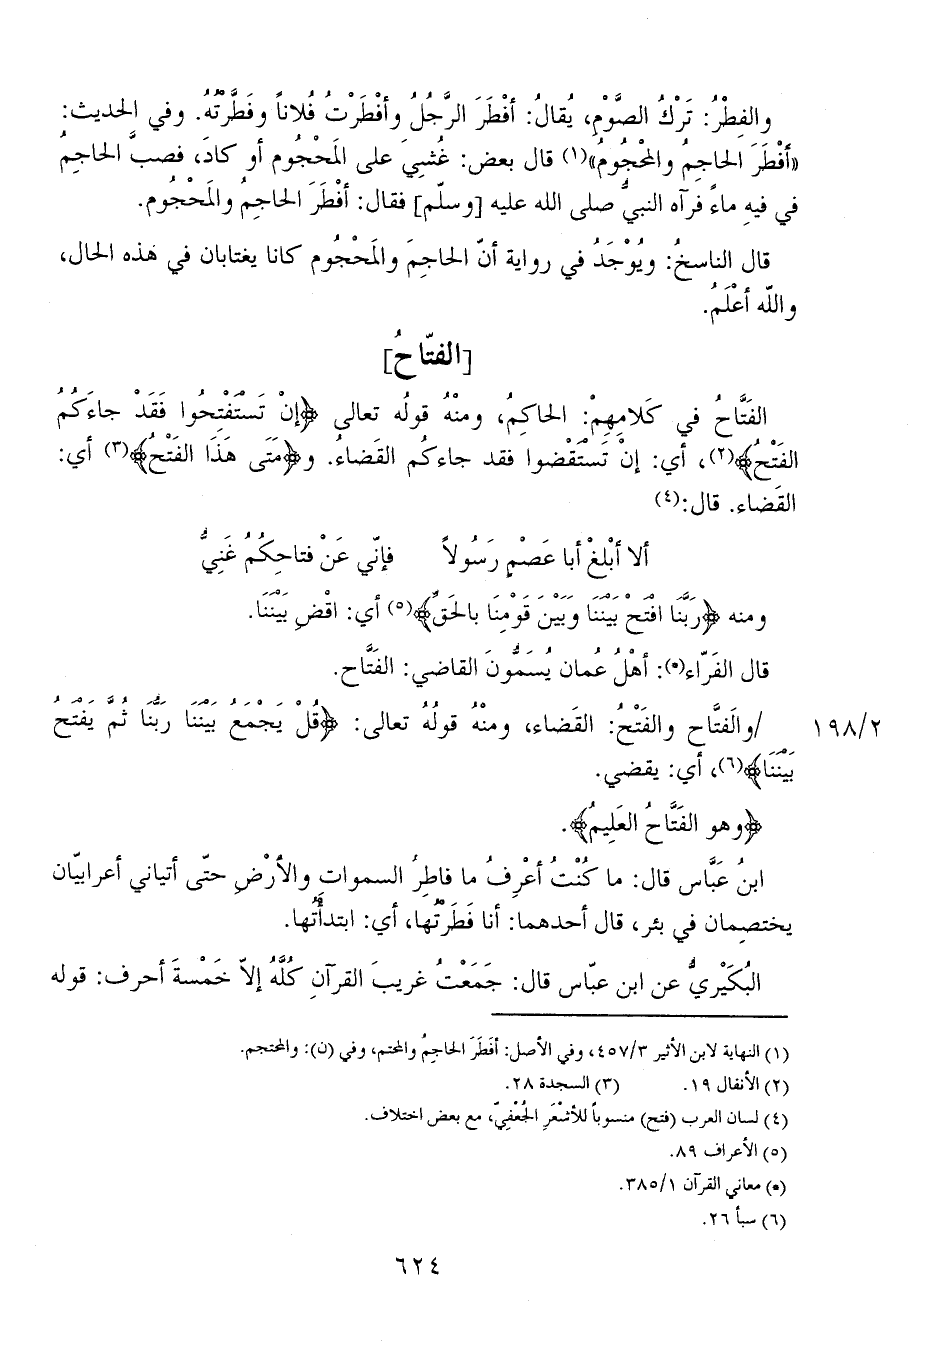 والفِطْرُ: تَرْكُ الصَّوْمِ، يُقالُ: أفْطَرَ الرَّجُلُ وأفْطَرْتُ فُلاناً وفَطَّرْتُهُ. وفي الحديث:
«أفْطَرَ الحاجِمُ والمَحْجُومُ»(١) قال بعض: غُشِيَ على المَحْجُوم أو كادَ، فصبَّ الحاجِمُ
في فيهِ ماءً فرآه النبيُّ صلى الله عليه [وسلّم] فقال: أفْطَرَ الحاجِمُ والمَحْجُوم.
قال الناسخُ: ويُوْجَدُ في رواية أنّ الحاجِمَ والمَحْجُوم كانا يغتابان في هَذه الحال،
واللّه أعْلَمُ.
[الفتّاحُ]
الفَتَّاحُ في كَلامِهِمْ: الحاكِمُ، ومنْهُ قولُه تعالى ﴿إنْ تَسْتَفْتِحُوا فَقَدْ جاءَكُمُ
الفَتْحُ﴾(٢)، أي: إنْ تَسْتَقْضوا فقد جاءَكُم القَضاءُ. و﴿مَتَى هَذَا الفَتْحُ﴾(٣) أي:
القَضاء. قال:(٤)
ألا أبْلِغْ أبا عَصْمٍ رَسُولاً فإنّي عَنْ فتاحِكُمُ غَنِيُّ
ومنه ﴿رَبَّنَا افْتَحْ بَيْنَنَا وَبَيْنَ قَوْمِنَا بالحَقِّ﴾(٥) أي: اقْضِ بَيْنَنَا.
قال الفَرّاء(*): أهْلُ عُمان يُسَمُّونَ القاضي: الفَتَّاح.
١٩٨/٢ /والَفتَّاح والفَتْحُ: القَضاء، ومنْهُ قولُهُ تعالى: ﴿قُلْ يَجْمَعُ بَيْنَنَا رَبُّنَا ثُمَّ يَفْتَحُ
بَيْنَنَا﴾(٦)، أي: يقضي.
﴿وهو الفَتَّاحُ العَلِيمُ﴾.
ابنُ عَبَّاس قال: ما كُنْتُ أعْرِفُ ما فاطِرُ السموات والأرْضِ حتّى أتياني أعرابيّان
يختصمان في بئر، قال أحدهما: أنا فَطَرْتُها، أي: ابتدأتُها.
البُكَيْريُّ عن ابن عبّاس قال: جَمَعْتُ غريبَ القرآنِ كُلَّهُ إلاّ خَمْسةَ أحرف: قوله
(١) النهاية لابن الأثير ٤٥٧/٣، وفي الأصل: أفَطَرَ الحاجِمُ والمحتم، وفي (ن): والمحتجم.
(٢) الأنفال ١٩. (٣) السجدة ٢٨.
(٤) لسان العرب (فتح) منسوباً للأشْعَرِ الجُعْفِيّ، مع بعض اختلاف.
(٥) الأعراف ٨٩.
(*) معاني القرآن ٣٨٥/١.
(٦) سبأ ٢٦.
٦٢٤